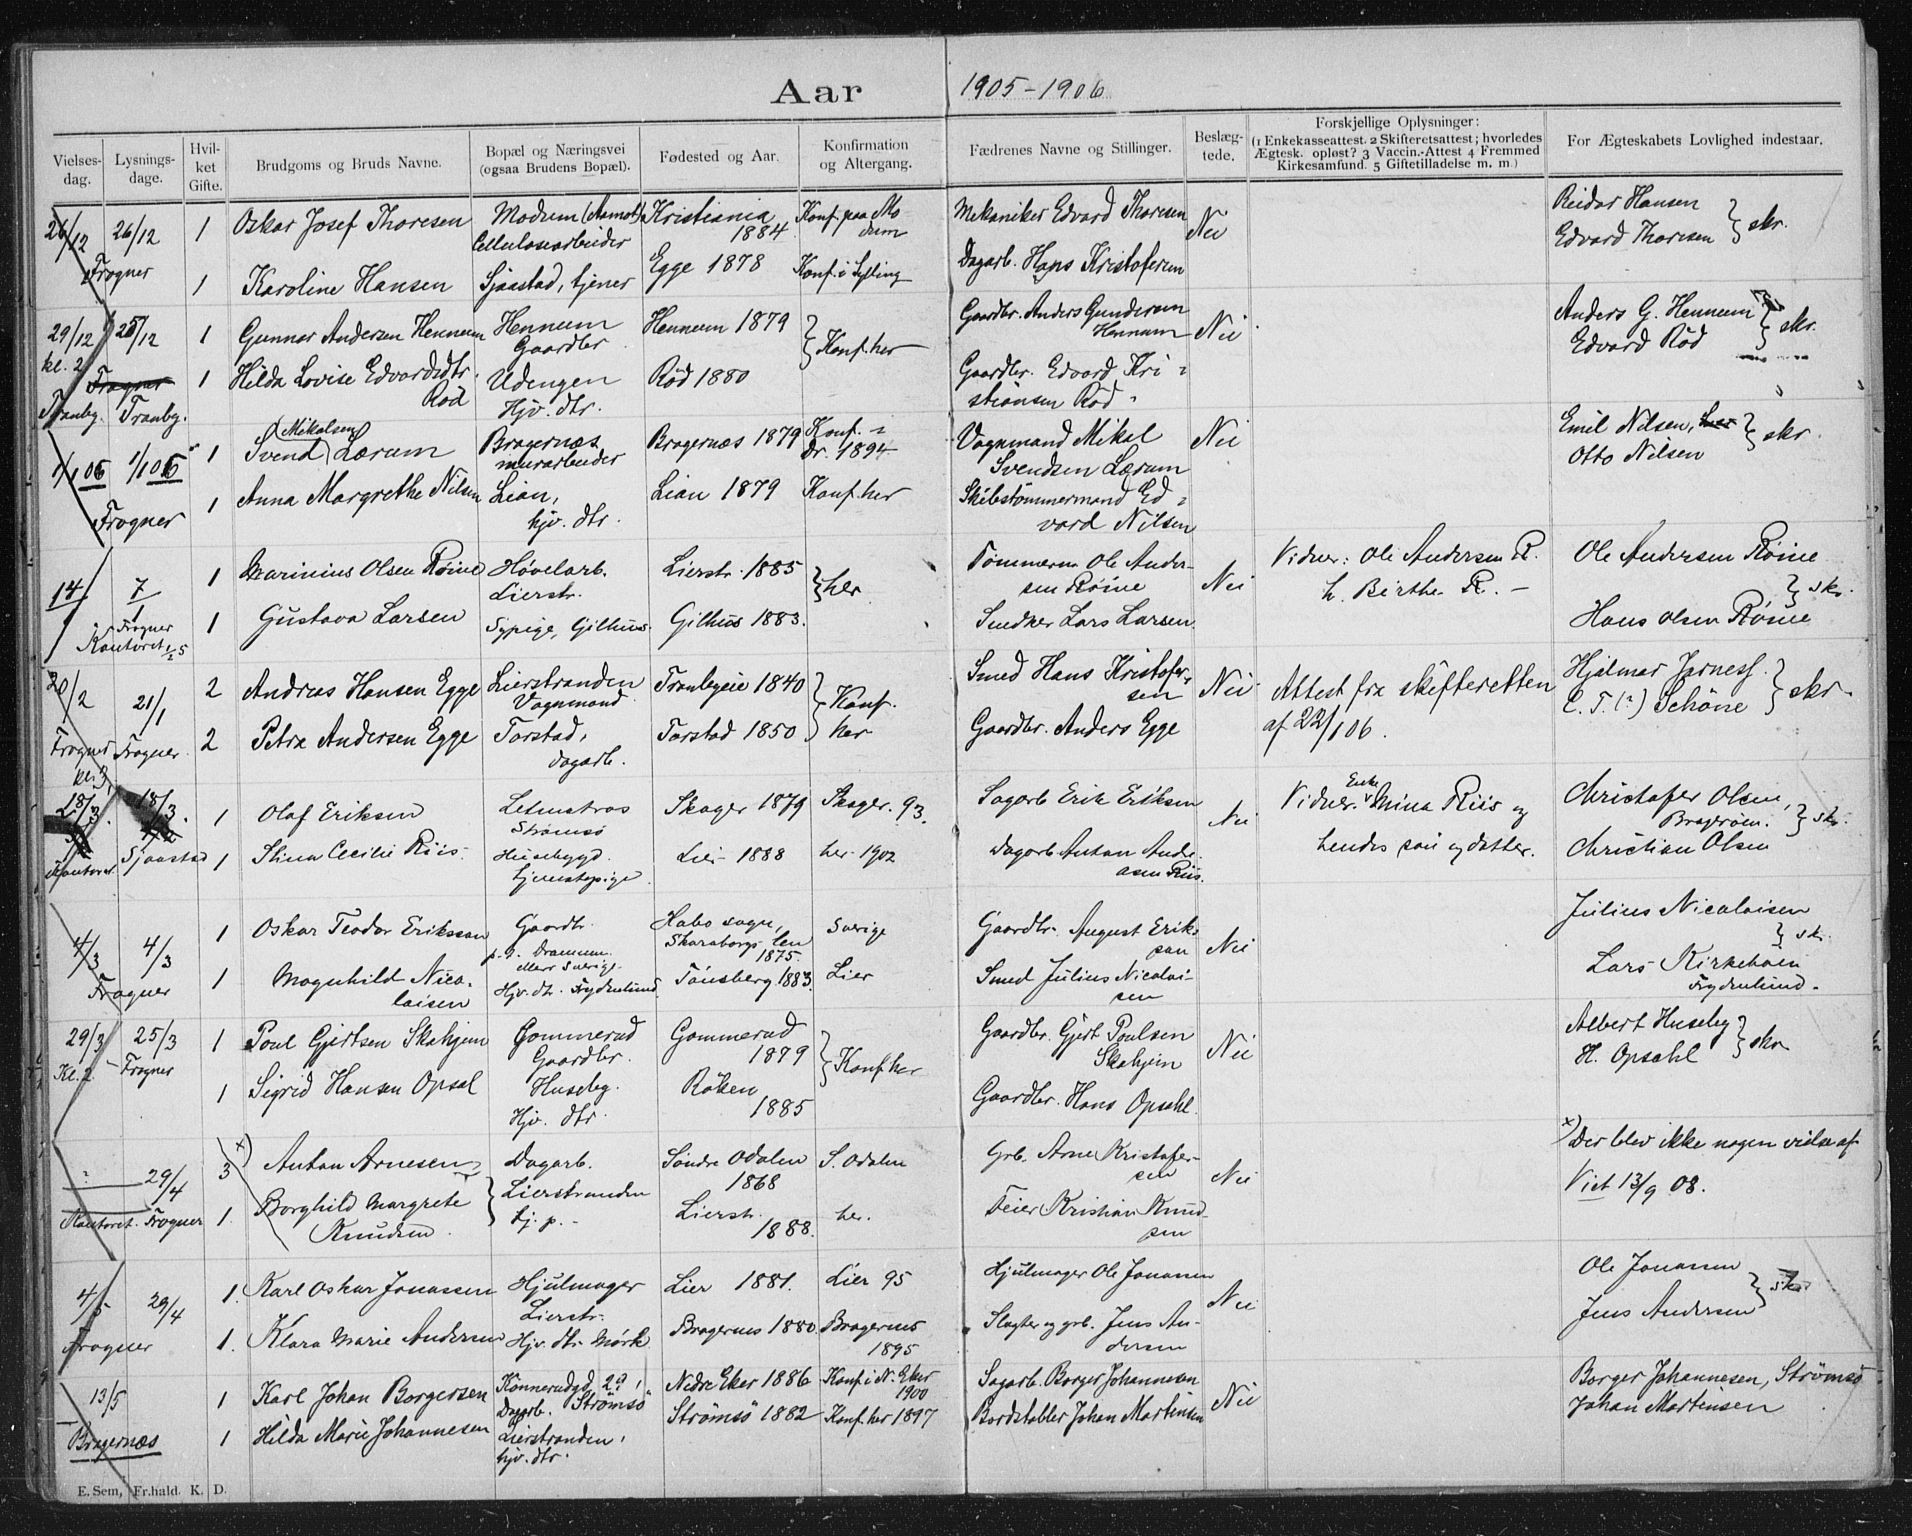 Aar 1905-1906
Vielses-dag. Lysnings-dage. Hvil-ket Gifte. Brudgoms og Bruds Navne. Bopæl og Næringsvei (ogsaa Brudens Bopæl). Fødested og Aar. Konfirmation og Altergang. Fædrenes Navne og Stillinger. Beslæg-tede. Forskjellige Oplysninger: (1 Enkekasseattest. 2 Skifteretsattest; hvorledes Ægtesk. opløst? 3 Vaccin.-Attest 4 Fremmed Kirkesamfund. 5 Giftetilladelse m. m.) For Ægteskabets Lovlighed indestaar.
26/12 26/12 1 Oskar Josef Thoresen Modum (Aamot) Cellulosearbeider Kristiania 1884 Konf. paa Modum Mekaniker Edvard Thoresen Nei Reidar Hansen
Edvard Thoresen } skr.
Frogner 1 Karoline Hansen Sjaastad, tjener Egge 1878 Konf. i Sylling Dagarb. Hans Kristofersen
29/12 kl. 2 26/12 1 Gunnar Andersen Hennum Hennum Gaardbr. Hennum 1879 } Konf. her Gaardbr. Anders Gundersen Hennum Nei Anders G. Hennum
Edvard Röd } skr.
Frogner Tranby. Tranby. 1 Hilda Lovise Edvardsdtr. Röd Udengen Hjv. dtr. Röd 1880 Gaardbr. Edvard Kristiansen Röd
1/1 06 1/1 06 1 Svend (Mikalsen) Lærum Bragernæs murarbeider Bragernæs 1879 Konf. i Dr. 1894 Vognmand Mikal Svendsen Lærum Nei Emil Nilsen,
Otto Nilsen } skr
Frogner 1 Anna Margrethe Nilsen Lian, hjv. dtr. Lian 1879 Konf. her Skibstömmermand Edvard Nilsen
14/1 7/1 1 Marinius Olsen Röine Hövelarb. Lierstr. Lierstr. 1885 } her Tömmerm. Ole Andersen Röine Nei Vidner: Ole Andersen R. h. Birthe R. – Ole Andersen Röine
Frogner Kontoret 1 Gustava Larsen Sypige, Gilhus. Gilhus 1883. Snedker Lars Larsen Hans Olsen Röine } skr.
20/2 21/1 2 Andreas Hansen Egge Lierstranden Vognmand Tranbyeie 1840 } Konf. her Smed Hans Kristofersen Nei Attest fra skifteretten af 22/1 06. Hjalmar Jarness.
C. T. (?) Schöne } skr.
Frogner kl. 3 Frogner. 2 Petra Andersen Egge Torstad, dagarb. Torstad 1850 Gaardbr. Anders Egge
18/3. 18/3. 1 Olaf Eriksen Strømsö Skoger 1879 Skoger. 93. Sagarb Erik Eriksen Nei Vidner. Enke Mina Riis og hendes søn og datter. Christofer Olsen, Bragerøen.
Kontoret. Sjaastad 1 Stina Cecilie Riis. Husebygd. tjenestepige Lier 1888 her 1902 Dagarb Anton Andreasen Riis. Christian Olsen } skr.
4/3 4/3 1 Oskar Teodor Eriksson Gaardbr. p.t. Drammen. Sverige. Habo sogn, Skaraborgs len 1875. Sverige Gaardbr. August Eriksson Nei Julius Nicolaisen
Frogner 1 Magnhild Nicolaisen Hjv. dtr. Frydenlund. Tönsberg 1883. Lier Smed Julius Nicolaisen Lars Kirkebøen Frydenlund. } skr.
29/3 Kl. 2 25/3 Frogner 1 Poul Gjertsen Skahjem Gommerud Gaardbr. Gommerud 1879 } Konf her Gaardbr. Gjert Poulsen Skahjem Nei Albert Huseby
H. Opsahl } skr
1 Sigrid Hansen Opsal Huseby. Hjv. dtr. Röken 1885 Gaardbr. Hans Opsahl.
29/4 3 x) Anton Arnesen Dagarb. Söndre Odalen 1868 S. Odalen Grb. Arne Kristofersen Nei x) Der blev ikke nogen vielse af
Viet 13/9 08.
Kontoret. Frogner 1. Borghild Margrete Knudsen } Lierstranden tj. p. – Lierstr. 1888. her. Feier Kristian Knudsen
4/5 29/4 1. Karl Oskar Jonassen Hjulmager Lierstr. Lier 1881. Lier 95 Hjulmager Ole Jonassen Nei Ole Jonassen
Frogner 1. Klara Marie Andersen Hjv. dtr. Mörk Bragernes 1880. Bragernes 1895 Slagter og grb. Jens Andersen Jens Andersen } skr
13/5 1 Karl Johan Borgersen Könnerudgd 29, Dagarb. Strömsö Nedre Eker 1886 Konf. i N. Eker 1900 Sagarb. Borger Johannesen Nei Borger Johannesen, Strömsö
Bragernæs 1 Hilda Marie Johannesen Lierstranden, hjv. dtr. Strömsö 1882 Konf. her 1897 Bordstabler Johan Martinsen Johan Martinsen
E. Sem, Fr.hald. K. D.